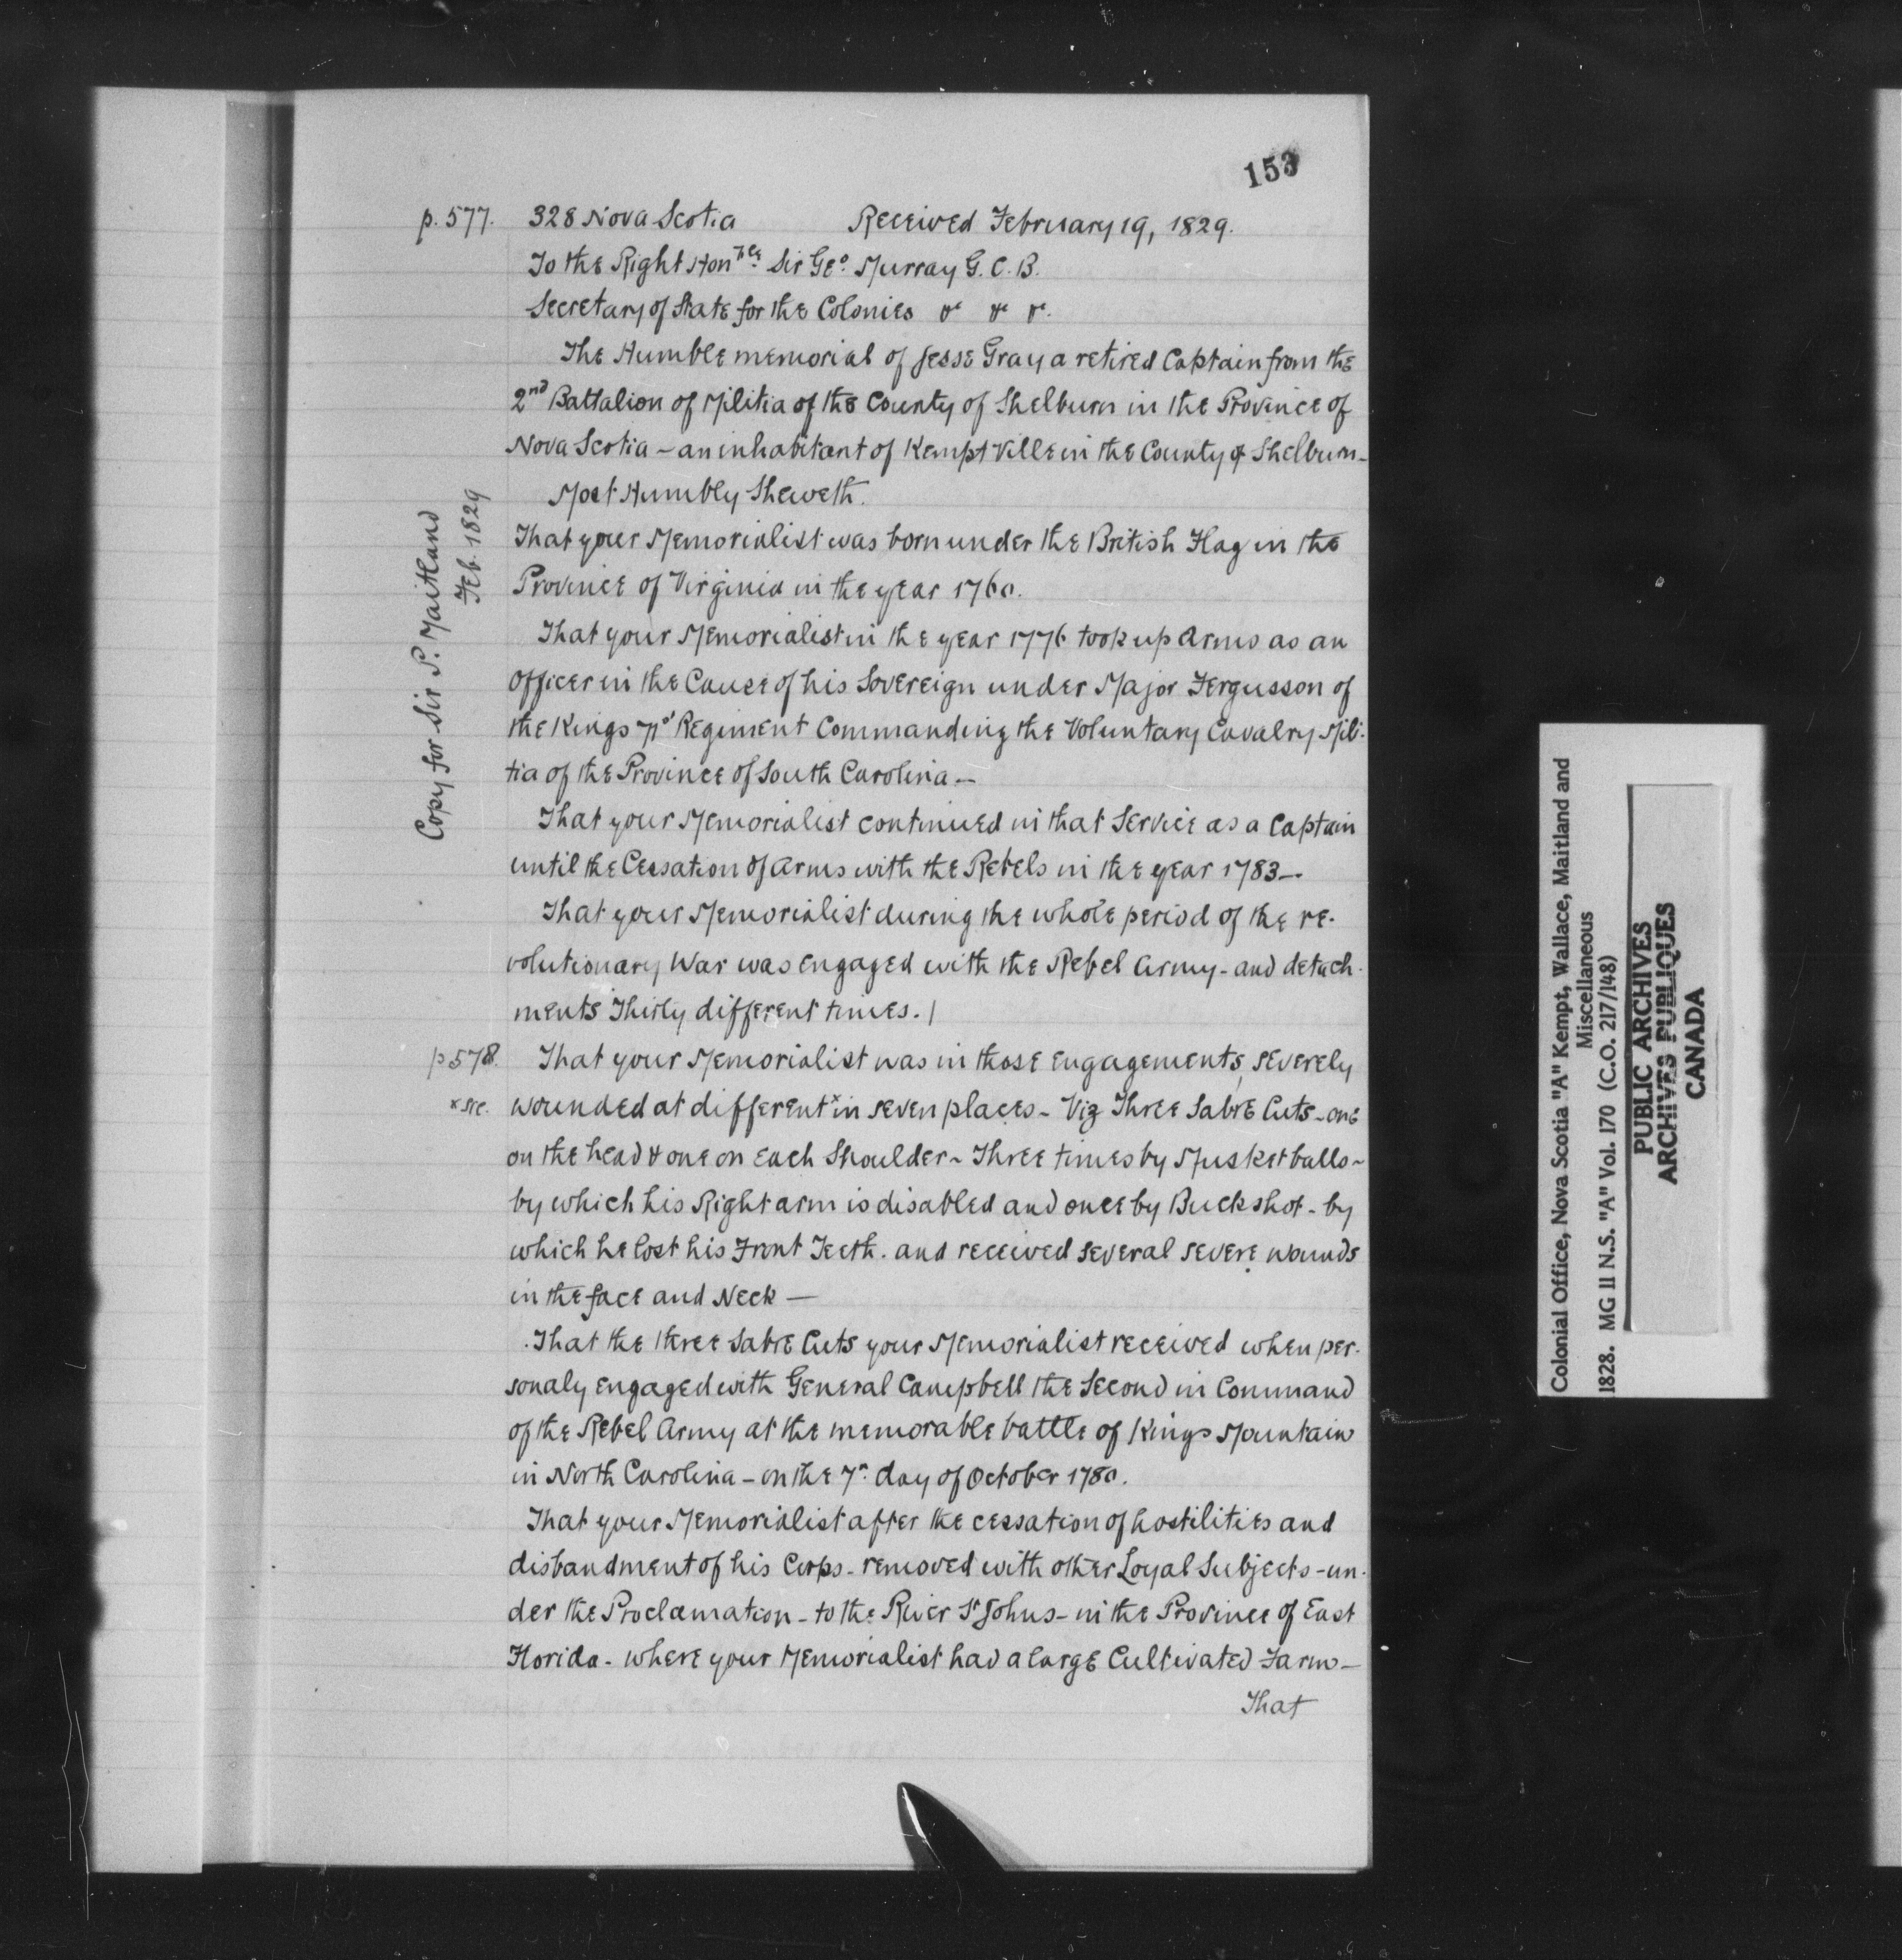 153
p. 577. 328 Nova Scotia Received February 19, 1829.
To the Right Honble Sir Geo. Murray G. C. B.
Secretary of State for the Colonies &c &c &c.
The Humble memorial of Jesse Gray a retired Captain from the
2nd Battalion of Militia of the County of Shelburn in the Province of
Nova Scotia - an inhabitant of Kempt Ville in the County of Shelburn -
Most Humbly Sheweth.
That your Memorialist was born under the British Flag in the
Province of Virginia in the year 1760.
That your Memorialist in the year 1776 took up Arms as an
Officer in the Cause of his Sovereign under Major Fergusson of
the Kings 71st Regiment Commanding the Voluntary Cavalry Mili-
tia of the Province of South Carolina -
That your Memorialist continued in that Service as a Captain
until the Cessation of Arms with the Rebels in the year 1783 -
That your Memorialist during the whole period of the re-
volutionary War was engaged with the Rebel Army - and detach-
ments Thirty different times. /
p 578. That your Memorialist was in those engagements, severely
x sic. wounded at different x in seven places - Viz Three Sabre Cuts - one
on the head & one on each Shoulder - Three times by Musket balls -
by which his Right arm is disabled and once by Buckshot - by
which he lost his Front Teeth. and received several severe wounds
in the face and Neck -
That the three Sabre Cuts your Memorialist received when per-
sonaly engaged with General Campbell the Second in Command
of the Rebel Army at the memorable battle of Kings Mountain
in North Carolina - on the 7th day of October 1780.
That your Memorialist after the cessation of hostilities and
disbandment of his Corps - removed with other Loyal Subjects - un-
der the Proclamation - to the River St Johns - in the Province of East
Florida - where your Memorialist had a large Cultivated Farm -
That
Copy for Sir P. Maitland
Feb. 1829
Colonial Office, Nova Scotia "A" Kempt, Wallace, Maitland and
Miscellaneous
1828. MG 11 N.S. "A" Vol. 170 (C.O. 217/148)
PUBLIC ARCHIVES
ARCHIVES PUBLIQUES
CANADA